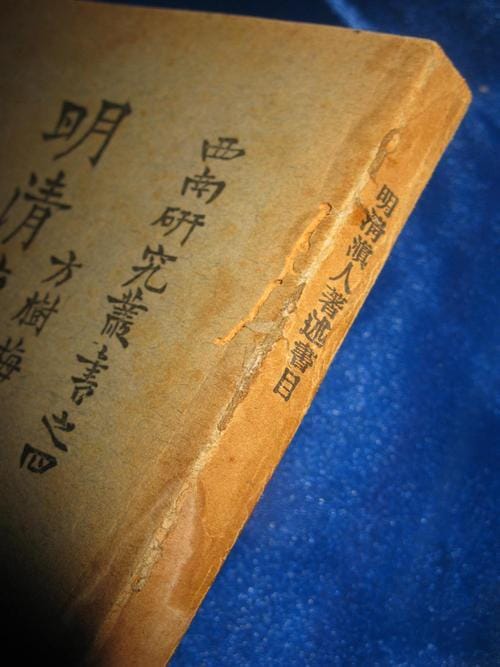 西南研究叢書之四
明清
方樹梅
明清滇人著述書目